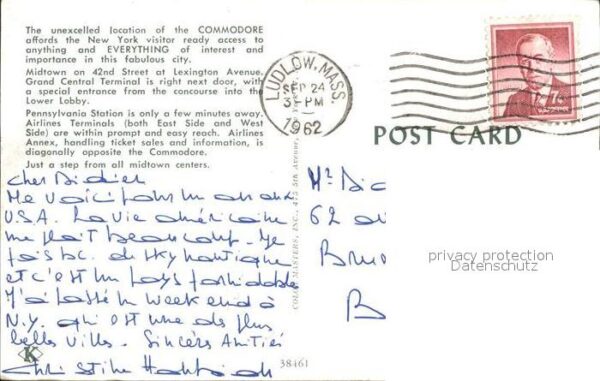 The unexcelled location of the COMMODORE
affords the New York visitor ready access to
anything and EVERYTHING of interest and
importance in this fabulous city.
Midtown on 42nd Street at Lexington Avenue.
Grand Central Terminal is right next door, with
a special entrance from the concourse into the
Lower Lobby.
Pennsylvania Station is only a few minutes away.
Airlines Terminals (both East Side and West
Side) are within prompt and easy reach. Airlines
Annex, handling ticket sales and information, is
diagonally opposite the Commodore.
Just a step from all midtown centers.
LUDLOW, MASS.
SEP 24
3 - PM
1962
POST CARD
Cher Didier
Me voici pour un an aux
U.S.A. La vie américaine
me plaît beaucoup. Je
fais bc. de sky nautique
et c'est un pays formidable
J'ai passé un week end à
N.Y. qui est une des plus
belles villes. Sincères Amitiés
Christine
K
MASTERS, INC., 475 5th Avenue,
38461
Mr
62
privacy protection
Datenschutz
B